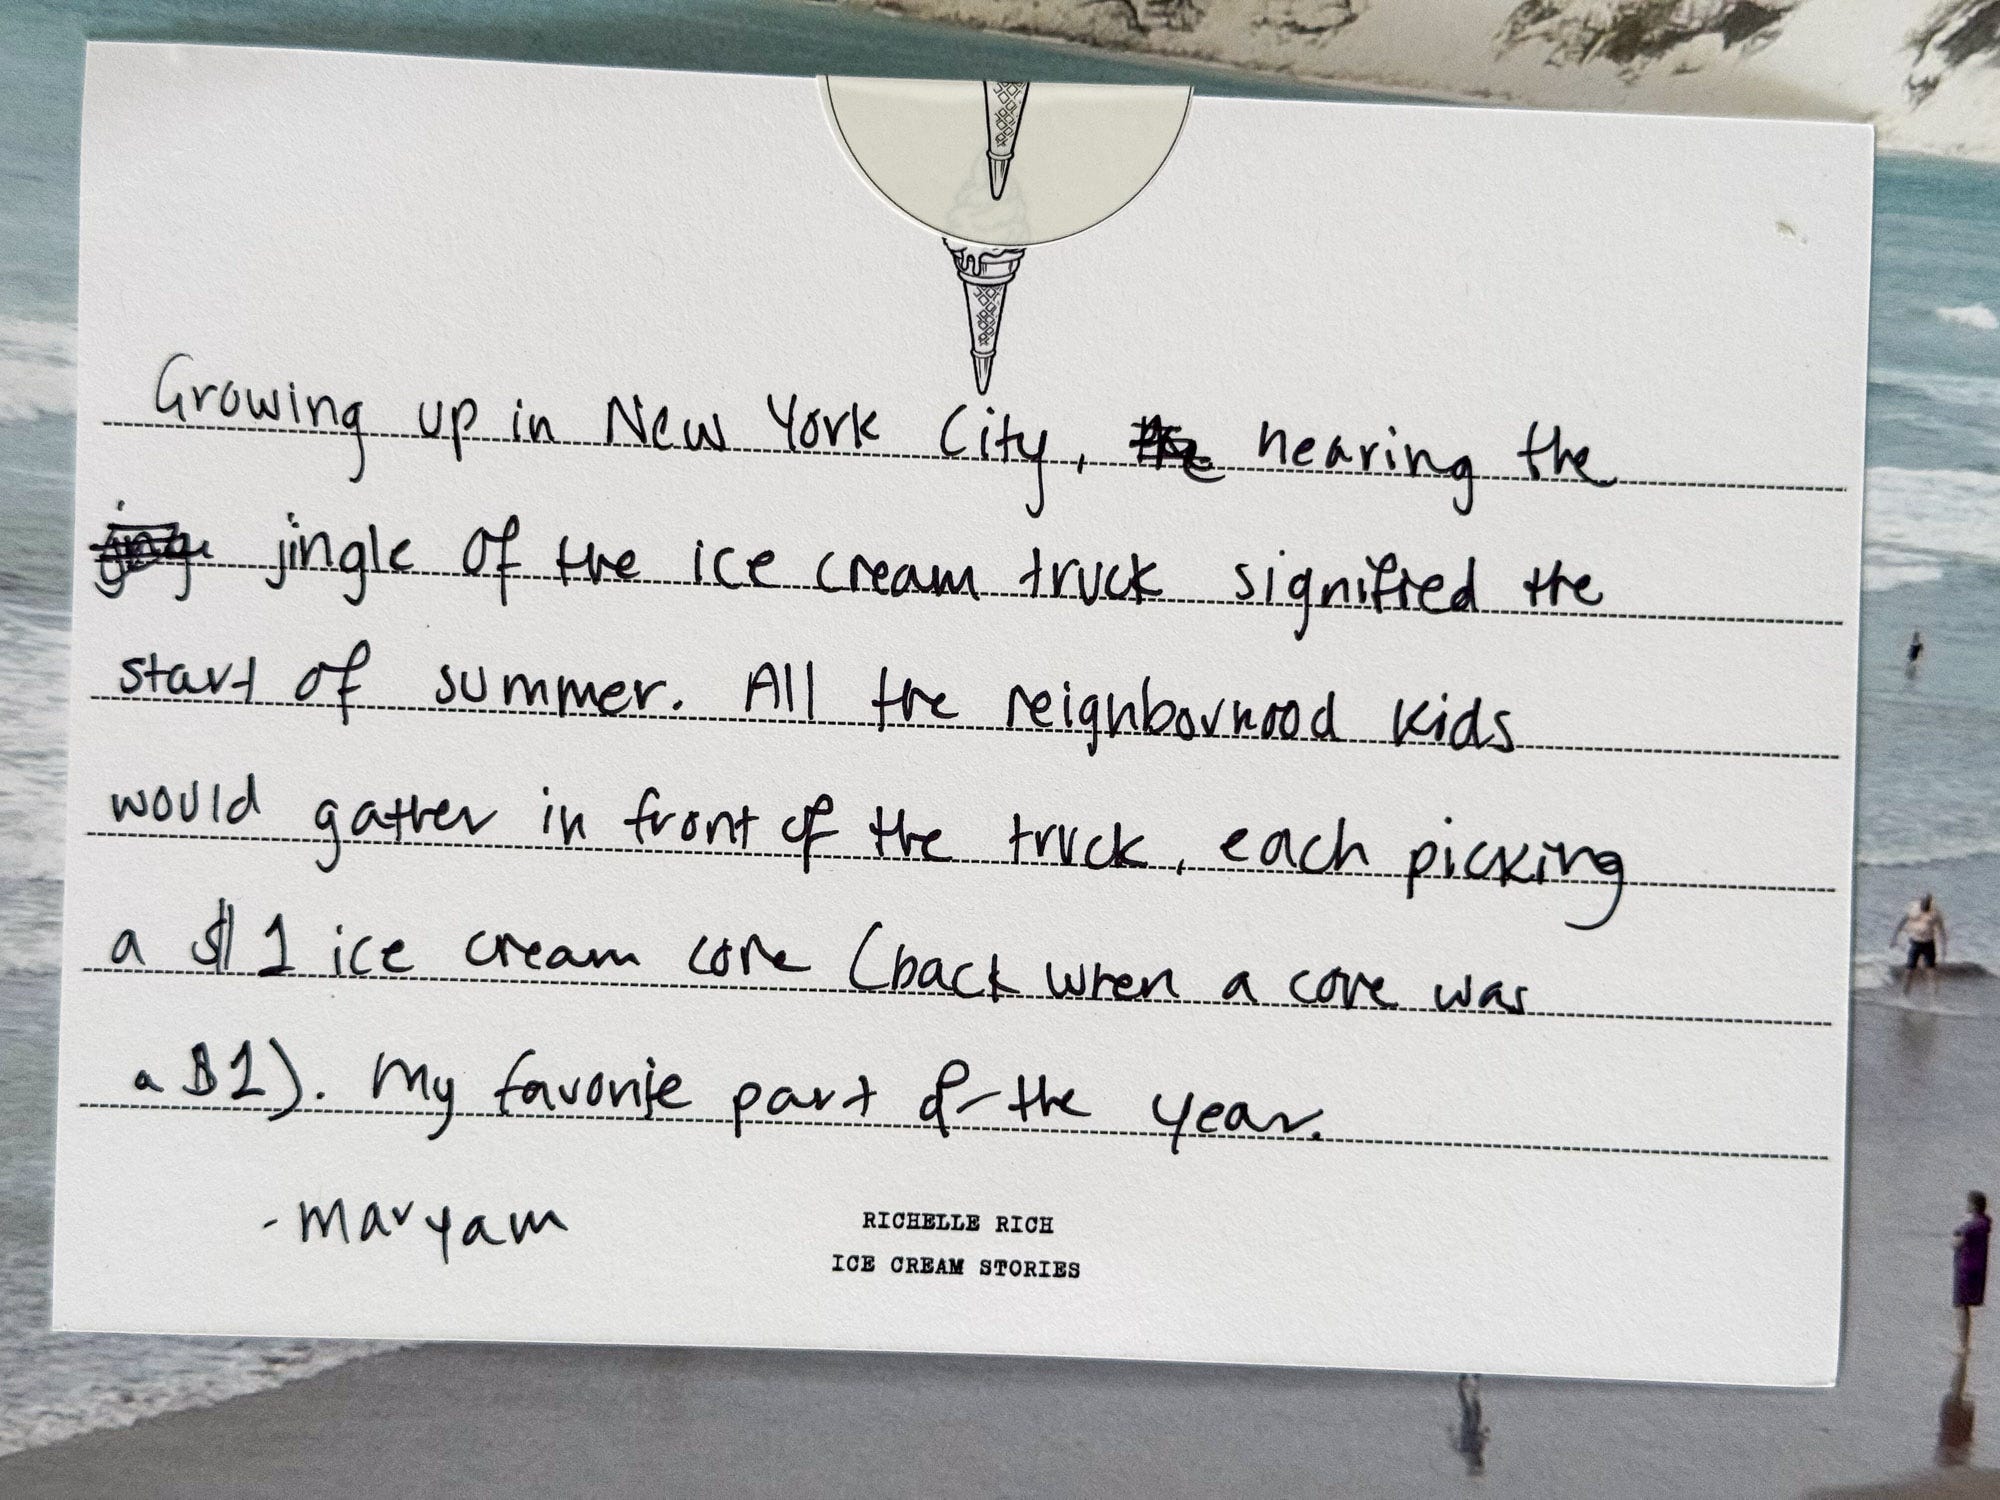 Growing up in New York City, hearing the
jingle of the ice cream truck signified the
start of summer. All the neighborhood kids
would gather in front of the truck, each picking
a $1 ice cream cone (back when a cone was
a $1). My favorite part of the year.
- Maryam
RICHELLE RICH
ICE CREAM STORIES